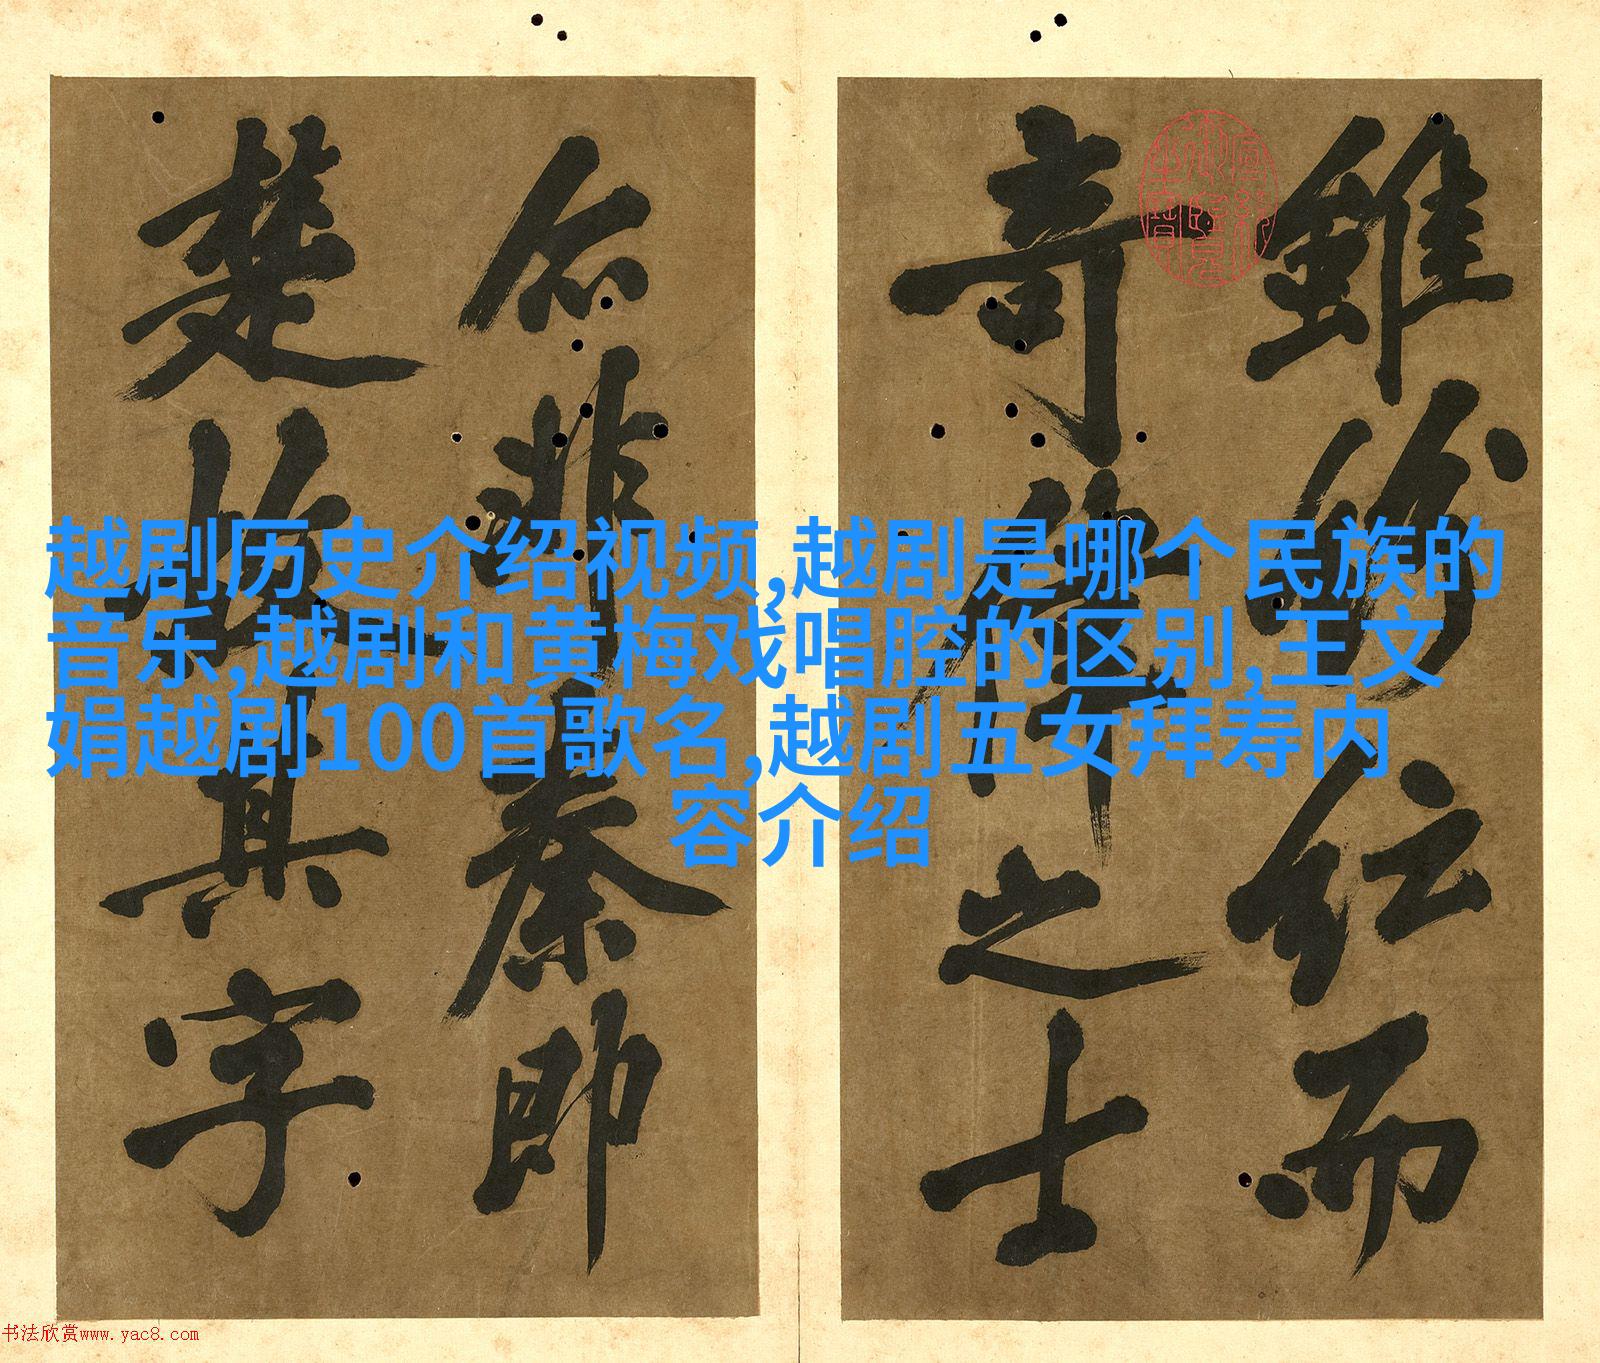 越剧历史介绍视频,越剧是哪个民族的
音乐,越剧和黄梅戏唱腔的区别,王文
娟越剧100首歌名,越剧五女拜寿内
容介绍
雖而
奇偉之士
非秦即
楚故其字
书法欣赏www.yac8.com